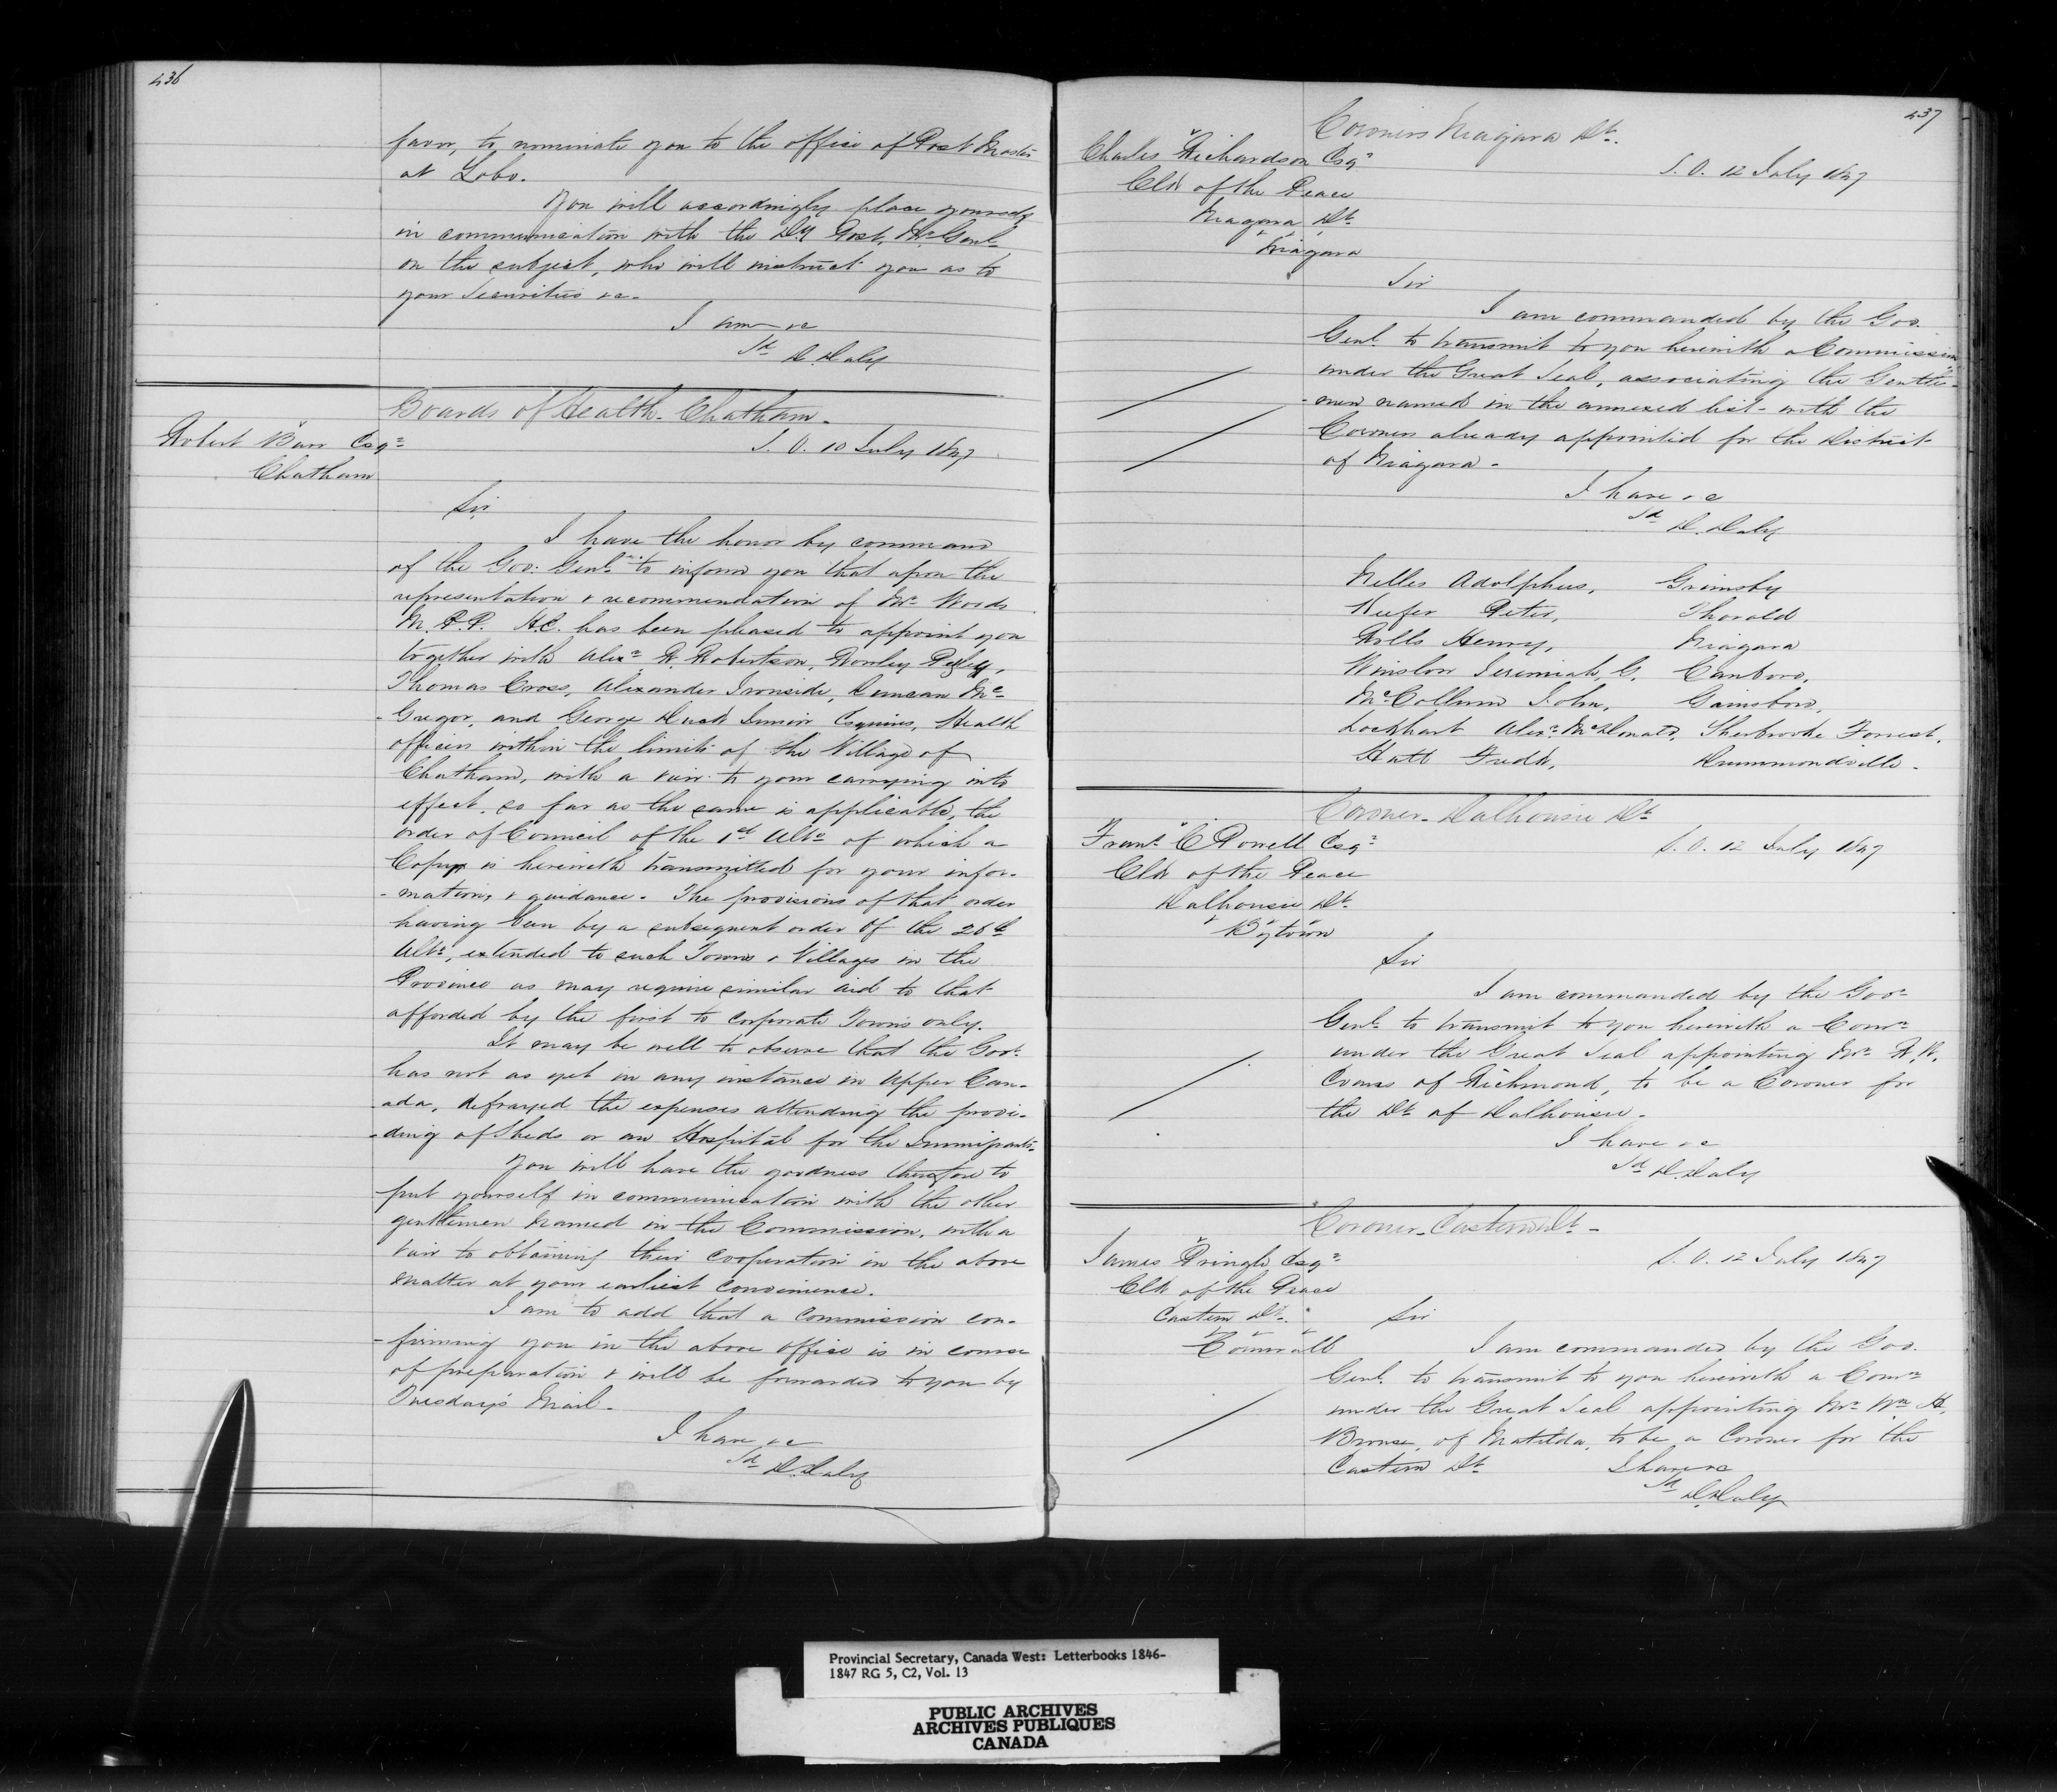 436
favor, to nominate you to the office of Post Master
at Lobo.
You will accordingly place yourself
in communication with the Dy Post. Mr Genl
on the subject, who will instruct you as to
your Securities &c.
I am &c
Sd D. Daly
Boards of Health - Chatham -
Robert Barr Esqr
Chatham
S. O. 10 July 1847
Sir
I have the honor by command
of the Gov: Genl to inform you that upon the
representation & recommendation of Mr Woods
M. P. P. H.E. has been pleased to appoint you
together with Alexr R. Robertson, Rowley
Thomas Cross, Alexander Ironside, Duncan Mc
-Gregor, and George Duck Junior Esquires, Health
officers within the limits of the Village of
Chatham, with a view to your carrying into
effect, so far as the same is applicable, the
order of Council of the 1st Ulto of which a
Copy is herewith transmitted for your infor-
-mation, & guidance. The provisions of that order
having been by a subsequent order of the 26th
Ulto, extended to such Towns & Villages in the
Province as may require similar aid to that
afforded by the first to corporate Towns only.
It may be well to observe that the Govt
has not as yet in any instance in Upper Can-
-ada, defrayed the expenses attending the provi-
-ding of Sheds or an Hospital for the Immigrants.
You will have the goodness therefore to
put yourself in communication with the other
gentlemen named in the Commission, with a
view to obtaining their cooperation in the above
matter at your earliest convenience.
I am to add that a Commission con-
-firming you in the above office is in course
of preparation & will be forwarded to you by
Tuesday's Mail.
I have &c
Sd D. Daly
437
Coroners Niagara Dt.
Charles Richardson Esqr
Clk of the Peace
Niagara Dt.
Niagara
S. O. 12 July 1847
Sir
I am commanded by the Gov.
Genl. to transmit to you herewith a Commission
under the Great Seal, associating the Gentle-
-men named in the annexed list - with the
Coroners already appointed for the District
of Niagara -
I have &c
Sd D. Daly
Nelles Adolphus, Grimsby
Keefer Peter, Thorold
Rolls Henry, Niagara
Winslow Jeremiah, G. Canboro,
McCollum John, Gainsboro,
Lockhart Alexr McDonald, Sherbrooke Forrest,
Hatt Fredk, Drummondville -
Coroner - Dalhousie Dt
Frans C Powell Esqr
Clk of the Peace
Dalhousie Dt.
Bytown
S. O. 12 July 1847
Sir
I am commanded by the Govr
Genl. to transmit to you herewith a Comn
under the Great Seal appointing Mr
Evans of Richmond, to be a Coroner for
the Dt of Dalhousie -
I have &c
Sd D. Daly
Coroner - Eastern Dt -
James Pringle Esqr
Clk of the Peace
Eastern Dt.
Cornwall
S. O. 12 July 1847
Sir
I am commanded by the Gov.
Genl. to transmit to you herewith a Comn
under the Great Seal appointing Mr Wm H.
Brouse, of Matilda, to be a Coroner for the
Eastern Dt
I have &c
Sd D. Daly
Provincial Secretary, Canada West: Letterbooks 1846-
1847 RG 5, C2, Vol. 13
PUBLIC ARCHIVES
ARCHIVES PUBLIQUES
CANADA